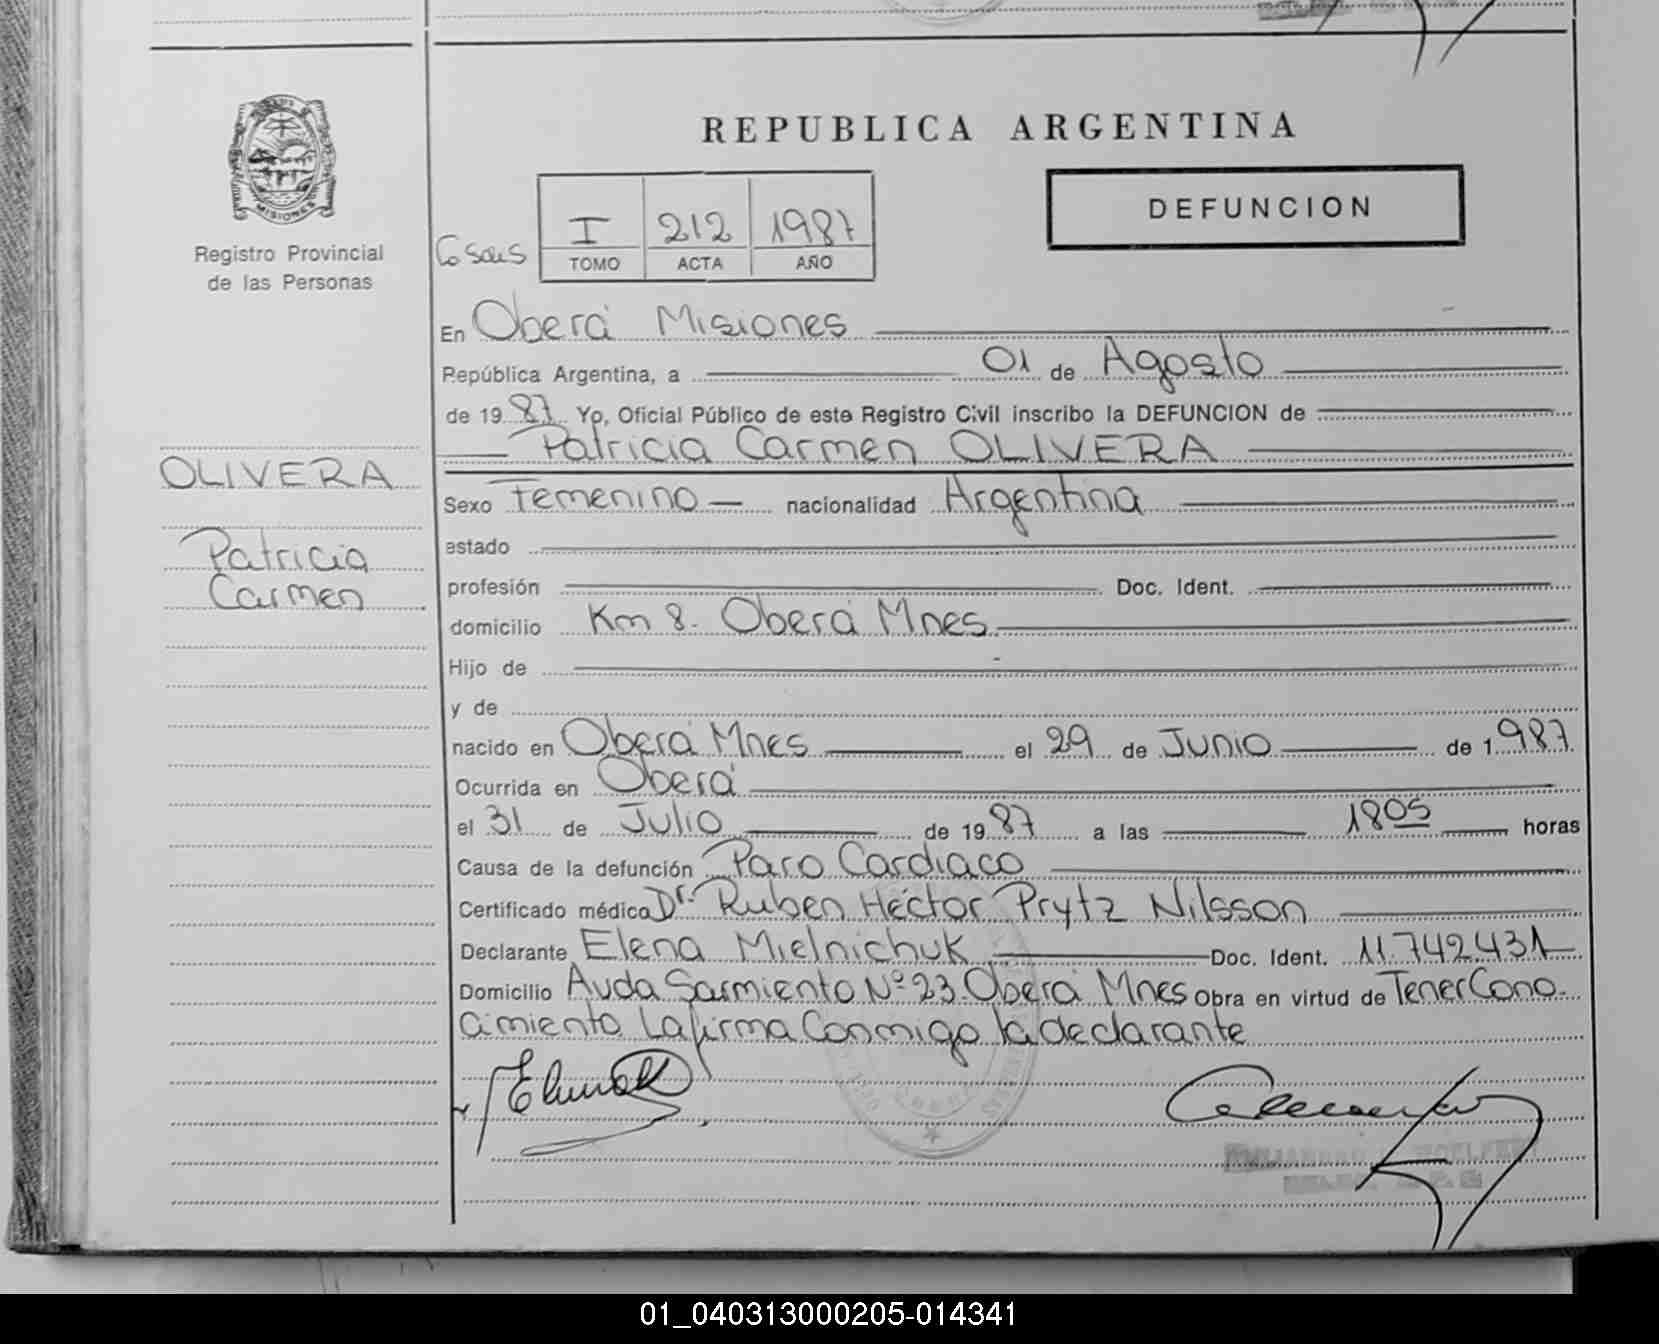 REPUBLICA ARGENTINA
MISIONES
Registro Provincial
de las Personas
DEFUNCION
I 212 1987
TOMO ACTA AÑO
En Oberá Misiones
República Argentina, a 01 de Agosto
de 1987 Yo, Oficial Público de este Registro Civil inscribo la DEFUNCION de
Patricia Carmen OLIVERA
OLIVERA
Patricia
Carmen
Sexo Femenino nacionalidad Argentina
estado
profesión Doc. Ident.
domicilio Km 8. Oberá Mnes.
Hijo de
y de
nacido en Oberá Mnes el 29 de Junio de 1987
Ocurrida en Oberá
el 31 de Julio de 1987 a las 1805 horas
Causa de la defunción Paro Cardiaco
Certificado médico Dr. Ruben Héctor Prytz Nilsson
Declarante Elena Mielnichuk Doc. Ident. 11.742.431
Domicilio Avda Sarmiento Nº 23. Oberá Mnes Obra en virtud de Tener Cono
cimiento. La firma Conmigo la declarante
01_040313000205-014341